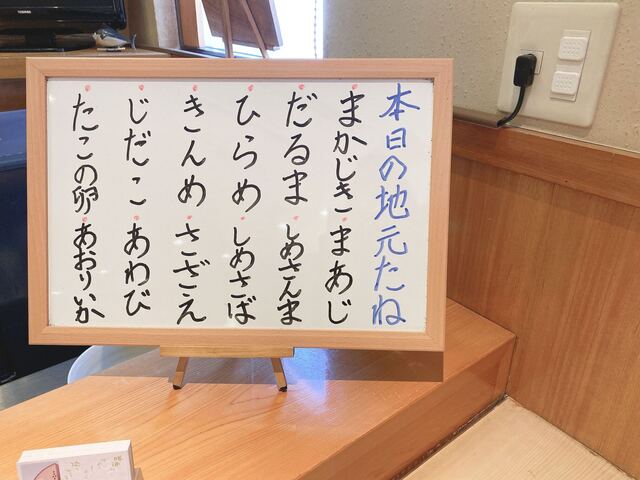 本日の地元たね
まかじき まあじ
だるま しめさんま
ひらめ しめさば
きんめ さざえ
じだこ あわび
たこの卵 あおりいか
TOSHIBA